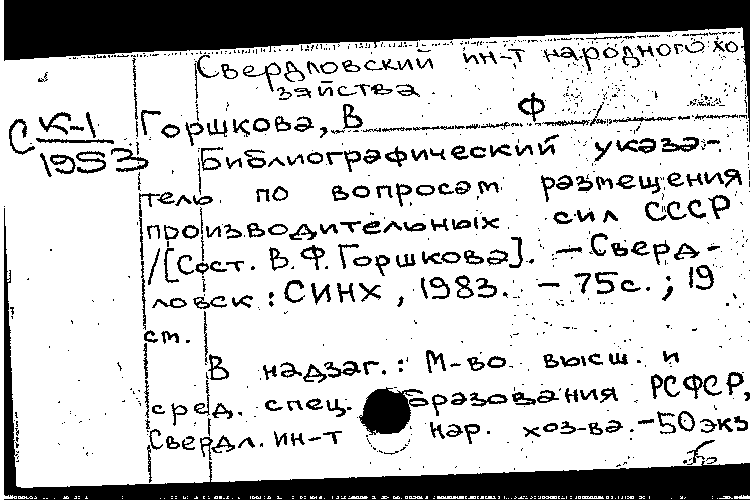 Свердловский ин-т народного хо-
зяйства
С К-1
1953
Горшкова, В Ф
Библиографический указа-
тель по вопросам размещения
производительных сил СССР
/[Сост. В.Ф. Горшкова]. – Сверд-
ловск : СИНХ, 1983. – 75с. ; 19
см.
В надзаг. : М-во высш. и
сред. спец. бразования РСФСР,
Свердл. ин-т нар. хоз-ва. – 50 экз